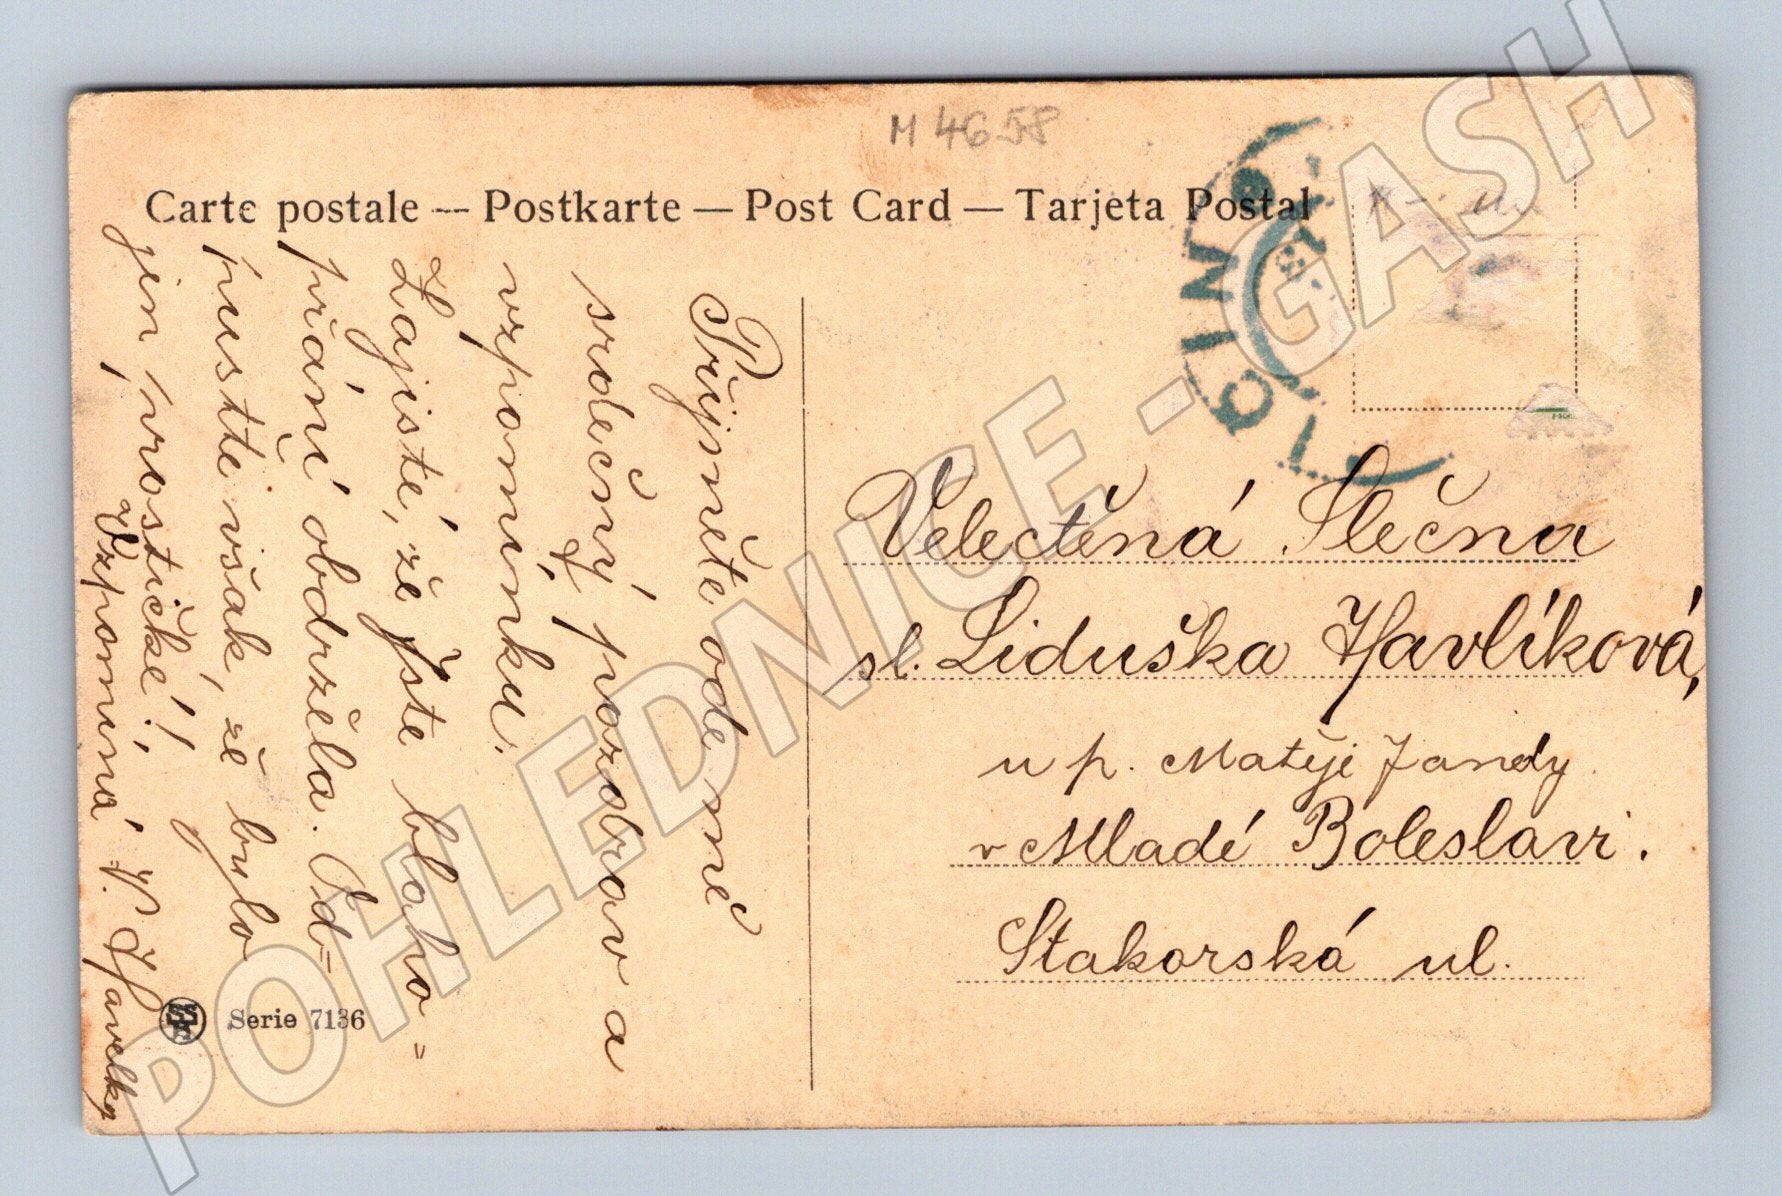 M 4658
Carte postale — Postkarte — Post Card — Tarjeta Postal
Přijměte ode mě
srdečný pozdrav a
vzpomínku.
Zajisté, že jste blaho=
přání obdržela. Od=
pusťte však, že bylo
jen prostičké!
Vzpomíná V. Havelka
Velectěná Slečna
sl. Liduška Havlíková,
u p. Matěje Jandy
v Mladé Boleslavi.
Stakorská ul.
Serie 7136
POHLEDNICE - GASH